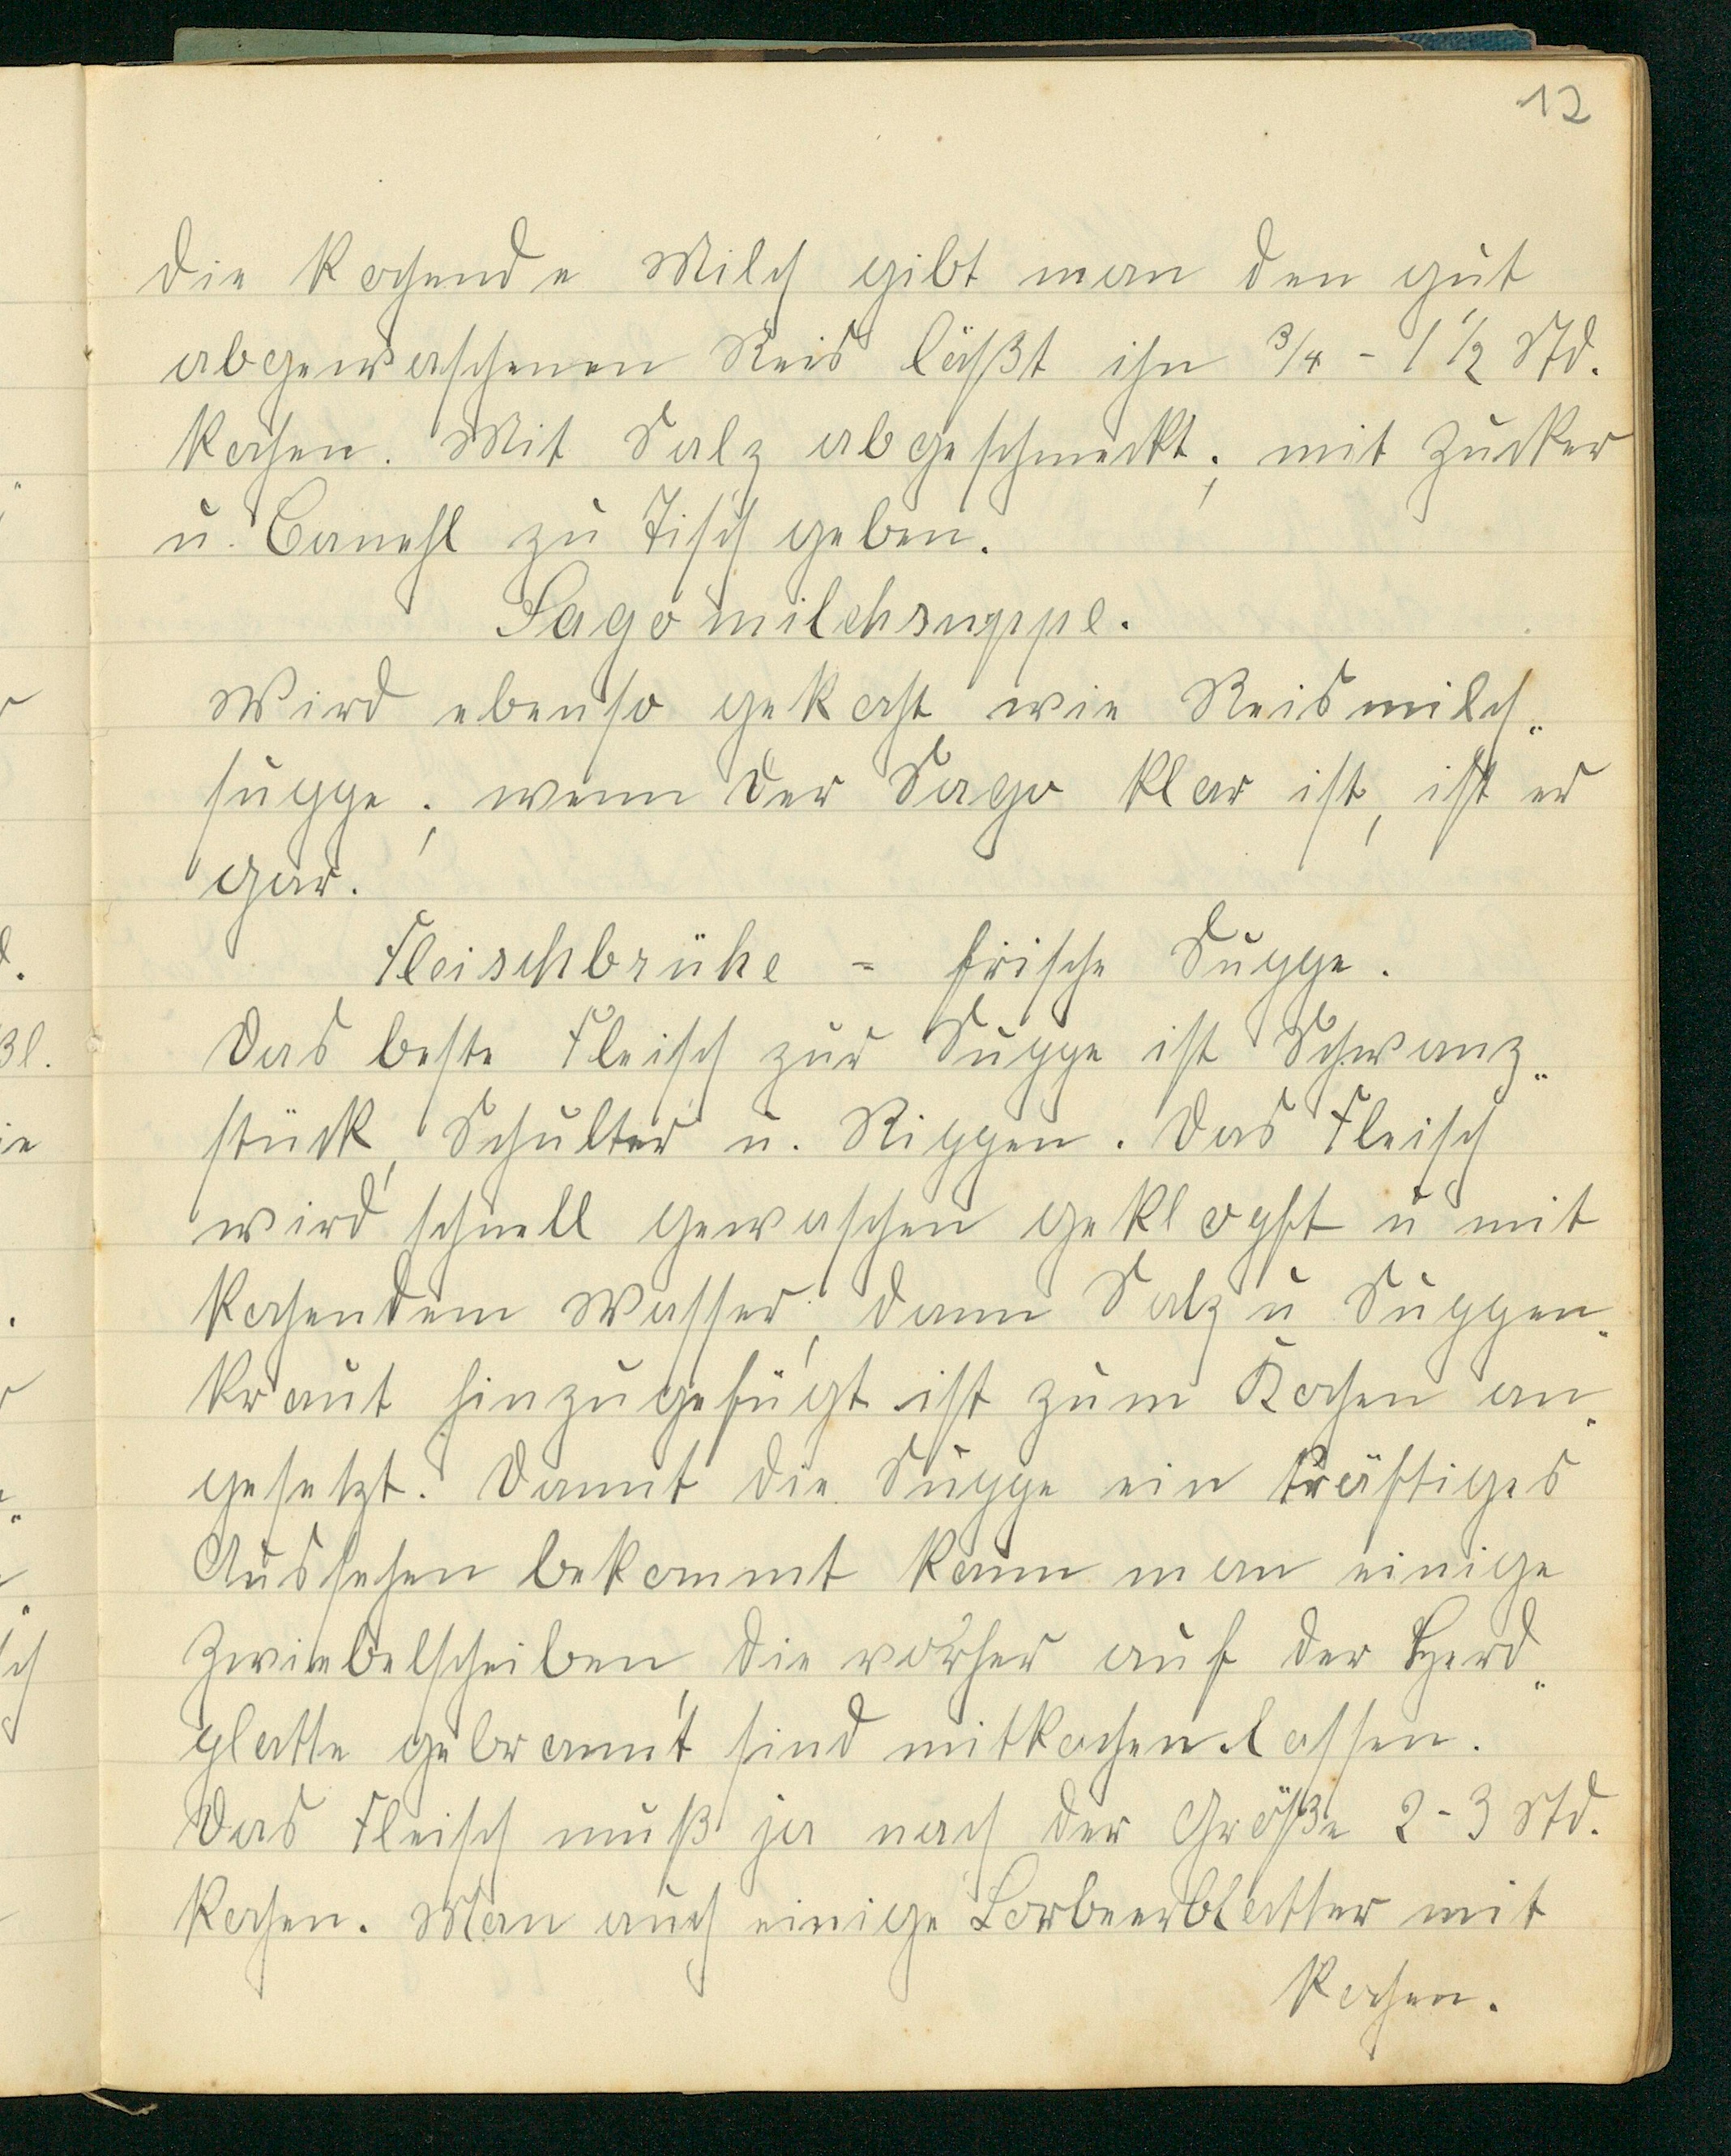 12
die kochende Milch gibt man den gut
abgewaschenen Reis läßt ihn 3/4 - 1 1/2 Std.
kochen. Mit Salz abgeschmeckt; mit Zucker
u. Canehl zu Tisch geben.
Sagomilchsuppe.
Wird ebenso gekocht wie Reismilch„
suppe; wenn der Sago klar ist, ist er
gar.
Fleischbrühe = frische Suppe.
Das beste Fleisch zur Suppe ist Schwanz„
stück, Schulter u. Rippen. Das Fleisch
wird schnell gewaschen geklopft u mit
kochendem Wasser, dann Salz u Suppen„
kraut hinzugefügt ist zum Kochen an„
gesetzt. Damit die Suppe ein kräftiges
Aussehen bekommt kann man einige
Zwiebelscheiben, die vorher auf der Herd„
platte gebrannt sind mitkochen lassen.
Das Fleisch muß je nach der Größe 2-3 Std.
kochen. Man auch einige Lorbeerblatter mit
kochen.